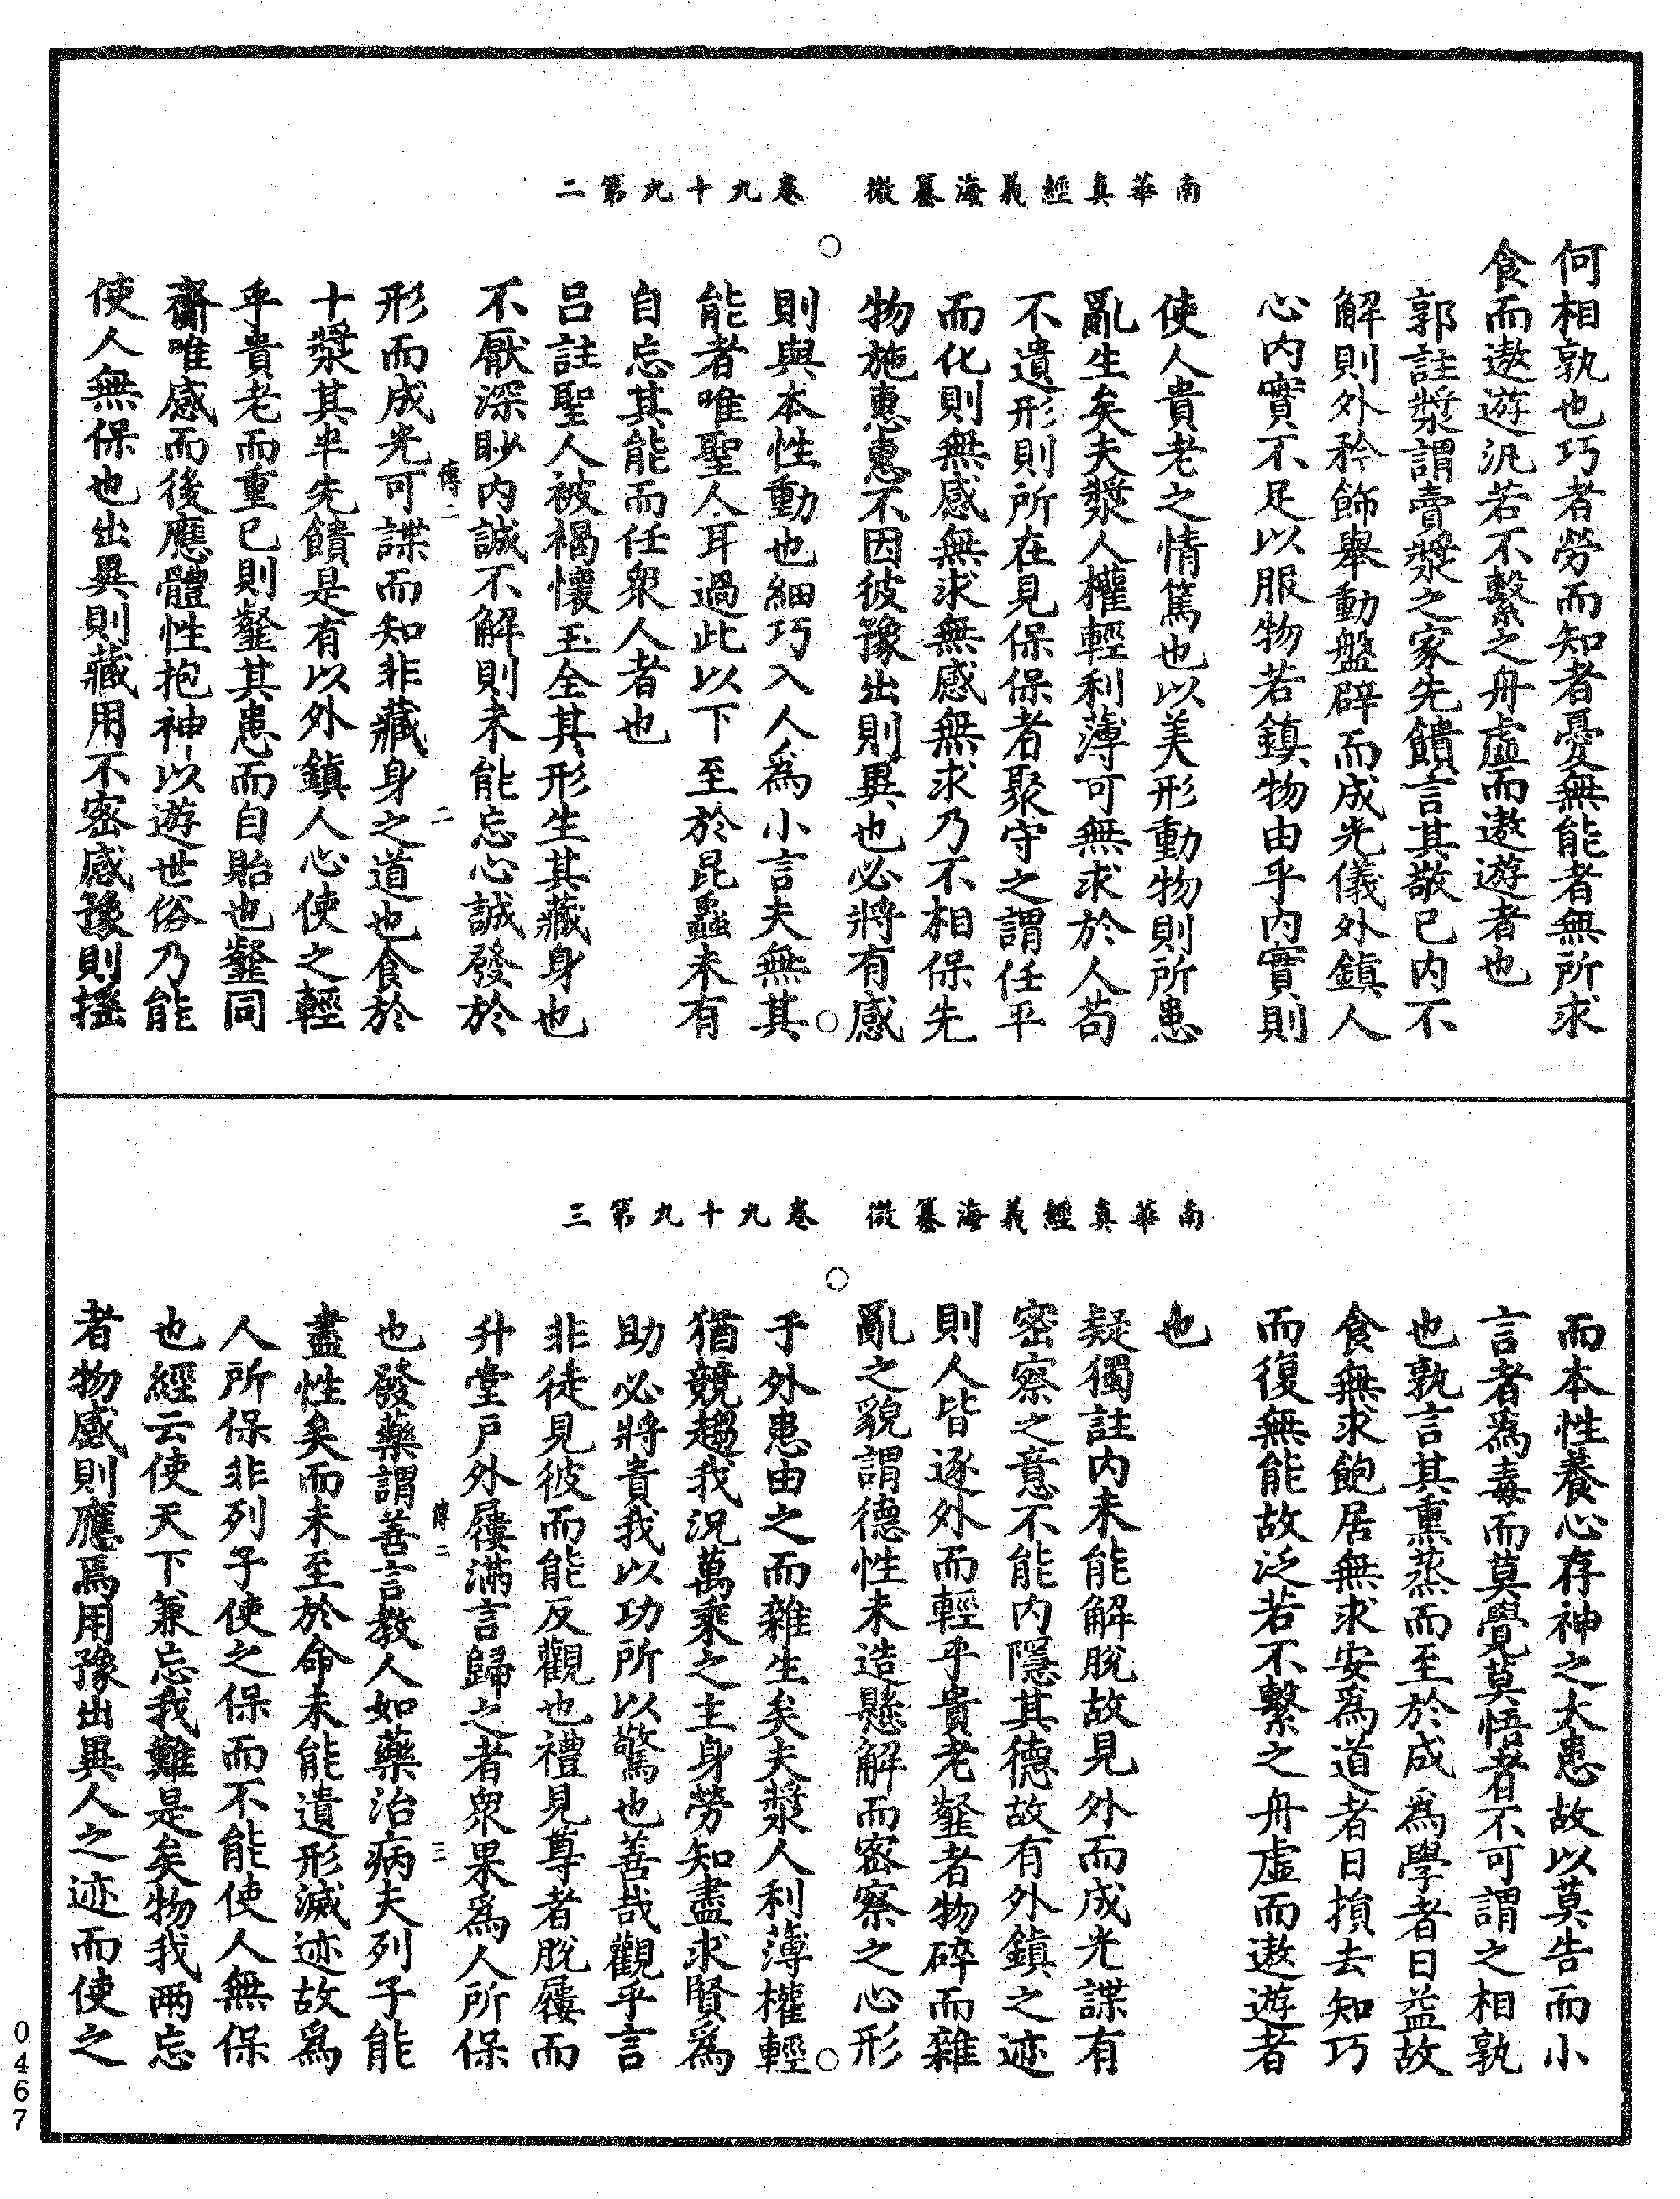 南華真經義海纂微　卷九十九第二
何相孰也巧者勞而知者憂無能者無所求
食而遨遊汎若不繫之舟虛而遨遊者也
郭註漿謂賣漿之家先饋言其敬已內不
解則外矜飾舉動盤辟而成光儀外鎮人
心內實不足以服物若鎮物由乎內實則
使人貴老之情篤也以美形動物則所患
亂生矣夫漿人權輕利薄可無求於人苟
不遺形則所在見保保者聚守之謂任平
而化則無感無求無感無求乃不相保先
物施惠惠不因彼豫出則異也必將有感
則與本性動也細巧入人為小言夫無其
能者唯聖人耳過此以下至於昆蟲未有
自忘其能而任眾人者也
呂註聖人被褐懷玉全其形生其藏身也
不厭深眇內誠不解則未能忘心誠發於
傳二
二
形而成光可諜而知非藏身之道也食於
十漿其半先饋是有以外鎮人心使之輕
乎貴老而重已則韲其患而自貽也韲同
齎唯感而後應體性抱神以遊世俗乃能
使人無保也出異則藏用不密感豫則搖
南華真經義海纂微　卷九十九第三
而本性養心存神之大患故以莫告而小
言者為毒而莫覺莫悟者不可謂之相孰
也孰言其熏蒸而至於成為學者日益故
食無求飽居無求安為道者日損去知巧
而復無能故泛若不繫之舟虛而遨遊者
也
疑獨註內未能解脫故見外而成光諜有
密察之意不能內隱其德故有外鎮之迹
則人皆逐外而輕乎貴老韲者物碎而雜
亂之貌謂德性未造懸解而密察之心形
于外患由之而雜生矣夫漿人利薄權輕
猶競趨我況萬乘之主身勞知盡求賢為
助必將責我以功所以驚也善哉觀乎言
非徒見彼而能反觀也禮見尊者脫屨而
升堂戶外屨滿言歸之者眾果為人所保
傳二
三
也發藥謂善言教人如藥治病夫列子能
盡性矣而未至於命未能遺形滅迹故為
人所保非列子使之保而不能使人無保
也經云使天下兼忘我難是矣物我兩忘
者物感則應焉用豫出異人之迹而使之
0467